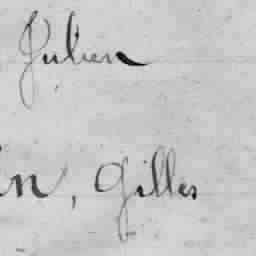 Julien
in, Gilles